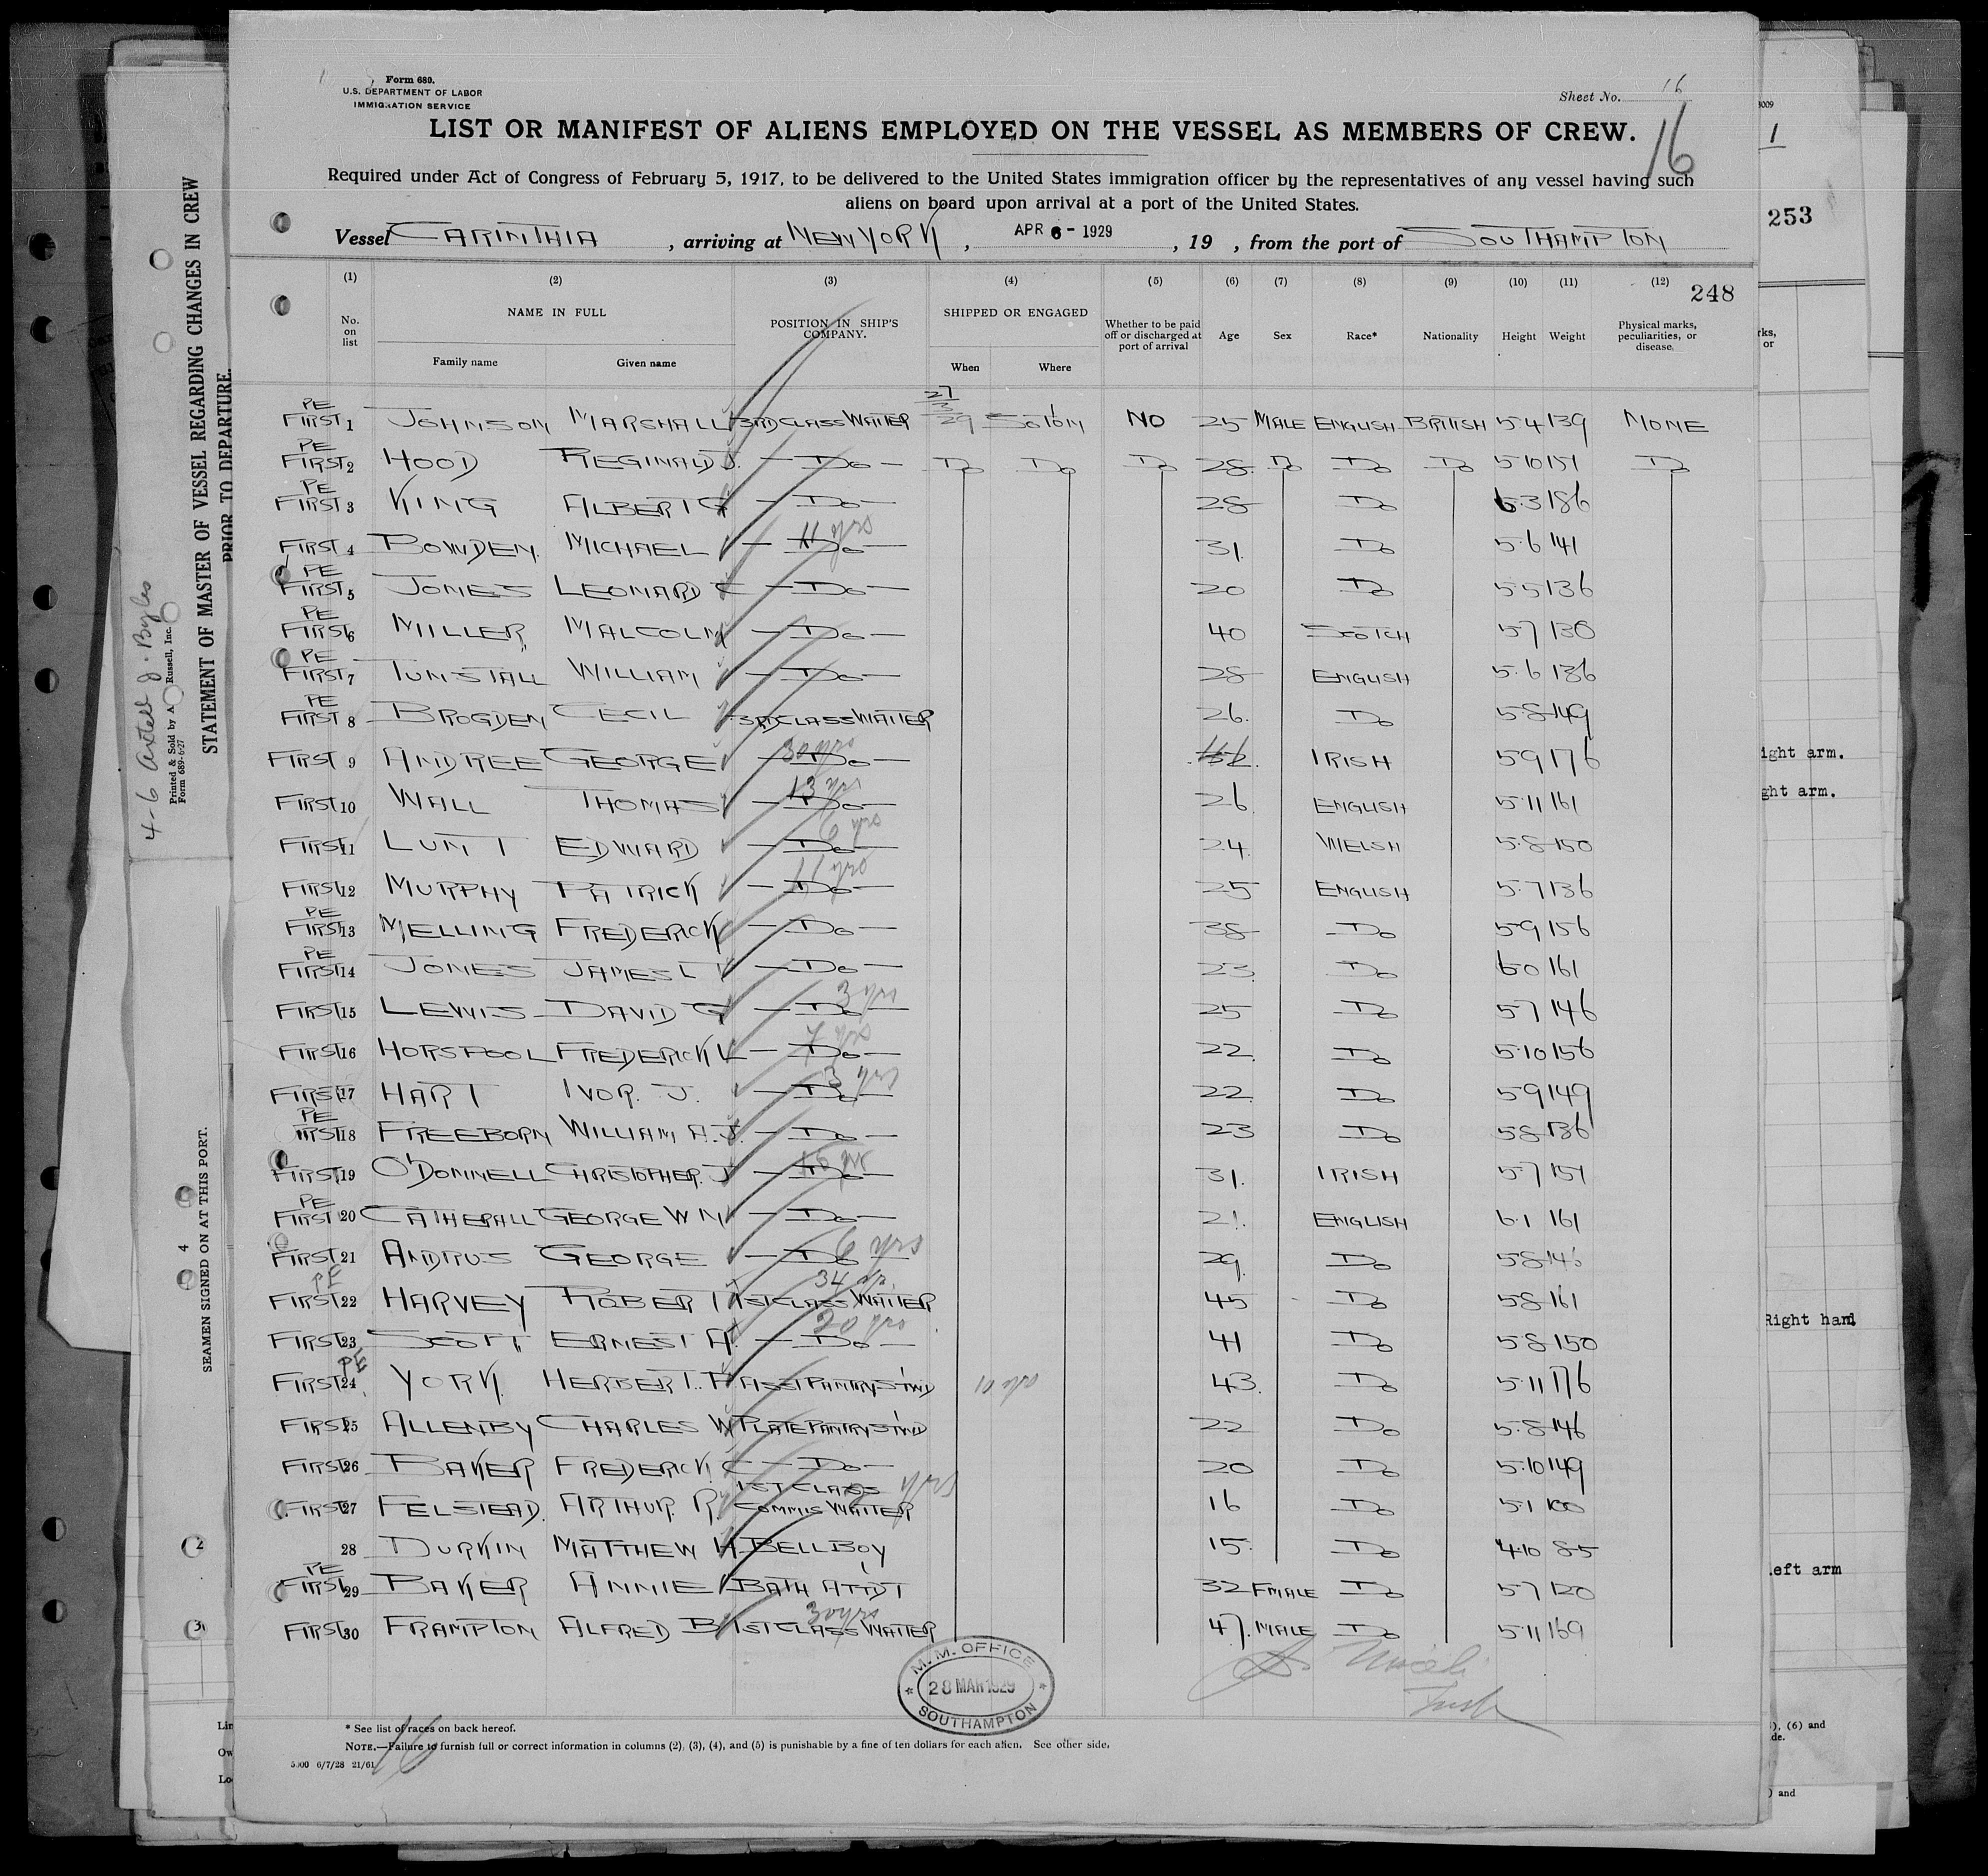 Form 689.
U.S. DEPARTMENT OF LABOR
IMMIGRATION SERVICE
Sheet No. 16
LIST OR MANIFEST OF ALIENS EMPLOYED ON THE VESSEL AS MEMBERS OF CREW.
16
Required under Act of Congress of February 5, 1917, to be delivered to the United States immigration officer by the representatives of any vessel having such
aliens on board upon arrival at a port of the United States.
Vessel CARINTHIA, arriving at NEW YORK, APR 6 - 1929, 19 , from the port of SOUTHAMPTON
(1) (2) (3) (4) (5) (6) (7) (8) (9) (10) (11) (12) 248
No. on list NAME IN FULL Family name Given name POSITION IN SHIP'S COMPANY. SHIPPED OR ENGAGED When Where Whether to be paid off or discharged at port of arrival Age Sex Race* Nationality Height Weight Physical marks, peculiarities, or disease.
PE FIRST 1 JOHNSON MARSHALL 3RD CLASS WAITER 29 So'ton NO 25 MALE ENGLISH BRITISH 5-4 139 NONE
PE FIRST 2 HOOD REGINALD J. - Do - Do Do Do 28 Do Do Do 5-10 151 Do
PE FIRST 3 KING ALBERT G - Do - 28 Do 6.3 186
FIRST 4 BOWDEN MICHAEL - Do - 11 yrs 31. Do 5.6 141
PE FIRST 5 JONES LEONARD C - Do - 20 Do 5-5 136
PE FIRST 6 MILLER MALCOLM - Do - 40 SCOTCH 5-7 130
PE FIRST 7 TUNSTALL WILLIAM - Do - 28 ENGLISH 5.6 136
PE FIRST 8 BROGDEN CECIL 3RD CLASS WAITER 26. Do 5-8 149
FIRST 9 ANDREE GEORGE - Do - 30 yrs IRISH 5-9 176
FIRST 10 WALL THOMAS - Do - 13 yrs 26 ENGLISH 5-11 161
FIRST 11 LUNT EDWARD - Do - 6 yrs 24. WELSH 5.8 150
FIRST 12 MURPHY PATRICK - Do - 11 yrs 25 ENGLISH 5.7 136
PE FIRST 13 MELLING FREDERICK - Do - 38 Do 5-9 156
PE FIRST 14 JONES JAMES L - Do - 23 Do 6-0 161
FIRST 15 LEWIS DAVID G - Do - 3 yrs 25 Do 5-7 146
FIRST 16 HORSPOOL FREDERICK - Do - 7 yrs 22. Do 5-10 156
FIRST 17 HART IVOR. J. - Do - 3 yrs 22. Do 5-9 149
PE FIRST 18 FREEBORN WILLIAM A.J. - Do - 23 Do 5-8 136
FIRST 19 O'DONNELL CHRISTOPHER. J - Do - 16 yrs 31. IRISH 5-7 151
PE FIRST 20 CATHERALL GEORGE W M - Do - 21. ENGLISH 6.1 161
FIRST 21 ANDRUS GEORGE - Do - 6 yrs 29. Do 5-8 146
PE FIRST 22 HARVEY ROBERT 1ST CLASS WAITER 45 Do 5-8 161
FIRST 23 SCOTT ERNEST A. - Do - 20 yrs 41 Do 5-8 150
PE FIRST 24 YORK HERBERT. ASST PANTRY ST'WD 43. Do 5-11 176
FIRST 25 ALLENBY CHARLES W PLATE PANTRY ST'WD 22 Do 5.8 146
FIRST 26 BAKER FREDERICK C - Do - 20 Do 5.10 149
FIRST 27 FELSTEAD ARTHUR R. 1ST CLASS COMMIS WAITER yrs 16 Do 5-1 100
28 DURKIN MATTHEW H BELL BOY 15. Do 4.10 85
PE FIRST 29 BAKER ANNIE BATH ATT'DT 32 FMALE Do 5-7 120
FIRST 30 FRAMPTON ALFRED B 1ST CLASS WAITER 30 yrs 47. MALE Do 5-11 169
M. M. OFFICE
28 MAR 1929
SOUTHAMPTON
* See list of races on back hereof.
NOTE.—Failure to furnish full or correct information in columns (2), (3), (4), and (5) is punishable by a fine of ten dollars for each alien. See other side.
5000 6/7/28 21/61
16
STATEMENT OF MASTER OF VESSEL REGARDING CHANGES IN CREW
PRIOR TO DEPARTURE.
Printed & Sold by A Russell, Inc.
Form 689-6-27
SEAMEN SIGNED ON AT THIS PORT.
4
2
3
Lin
Ow
Lo
3009
1
253
rks,
or
ight arm.
ght arm.
Right hand
Left arm
), (6) and
de.
) and